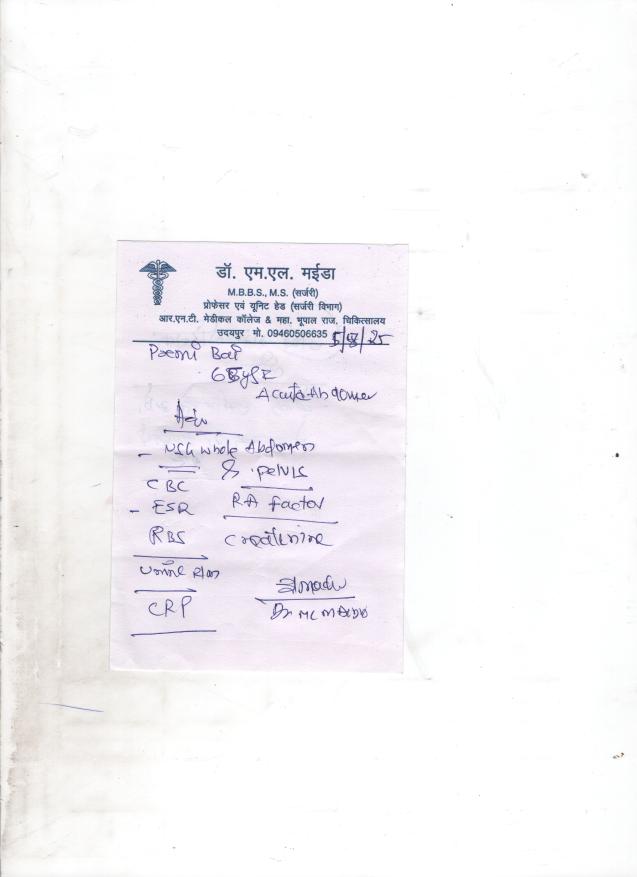 डॉ. एम.एल. मईडा
M.B.B.S., M.S. (सर्जरी)
प्रोफेसर एवं यूनिट हेड (सर्जरी विभाग)
आर.एन.टी. मेडीकल कॉलेज & महा. भूपाल राज. चिकित्सालय
उदयपुर मो. 09460506635
Bai
Acute Abdomen
Adv
- USG whole Abdomen
& pelvis
CBC
- ESR RA factor
RBS creatinine
Urine
CRP
Dr ML